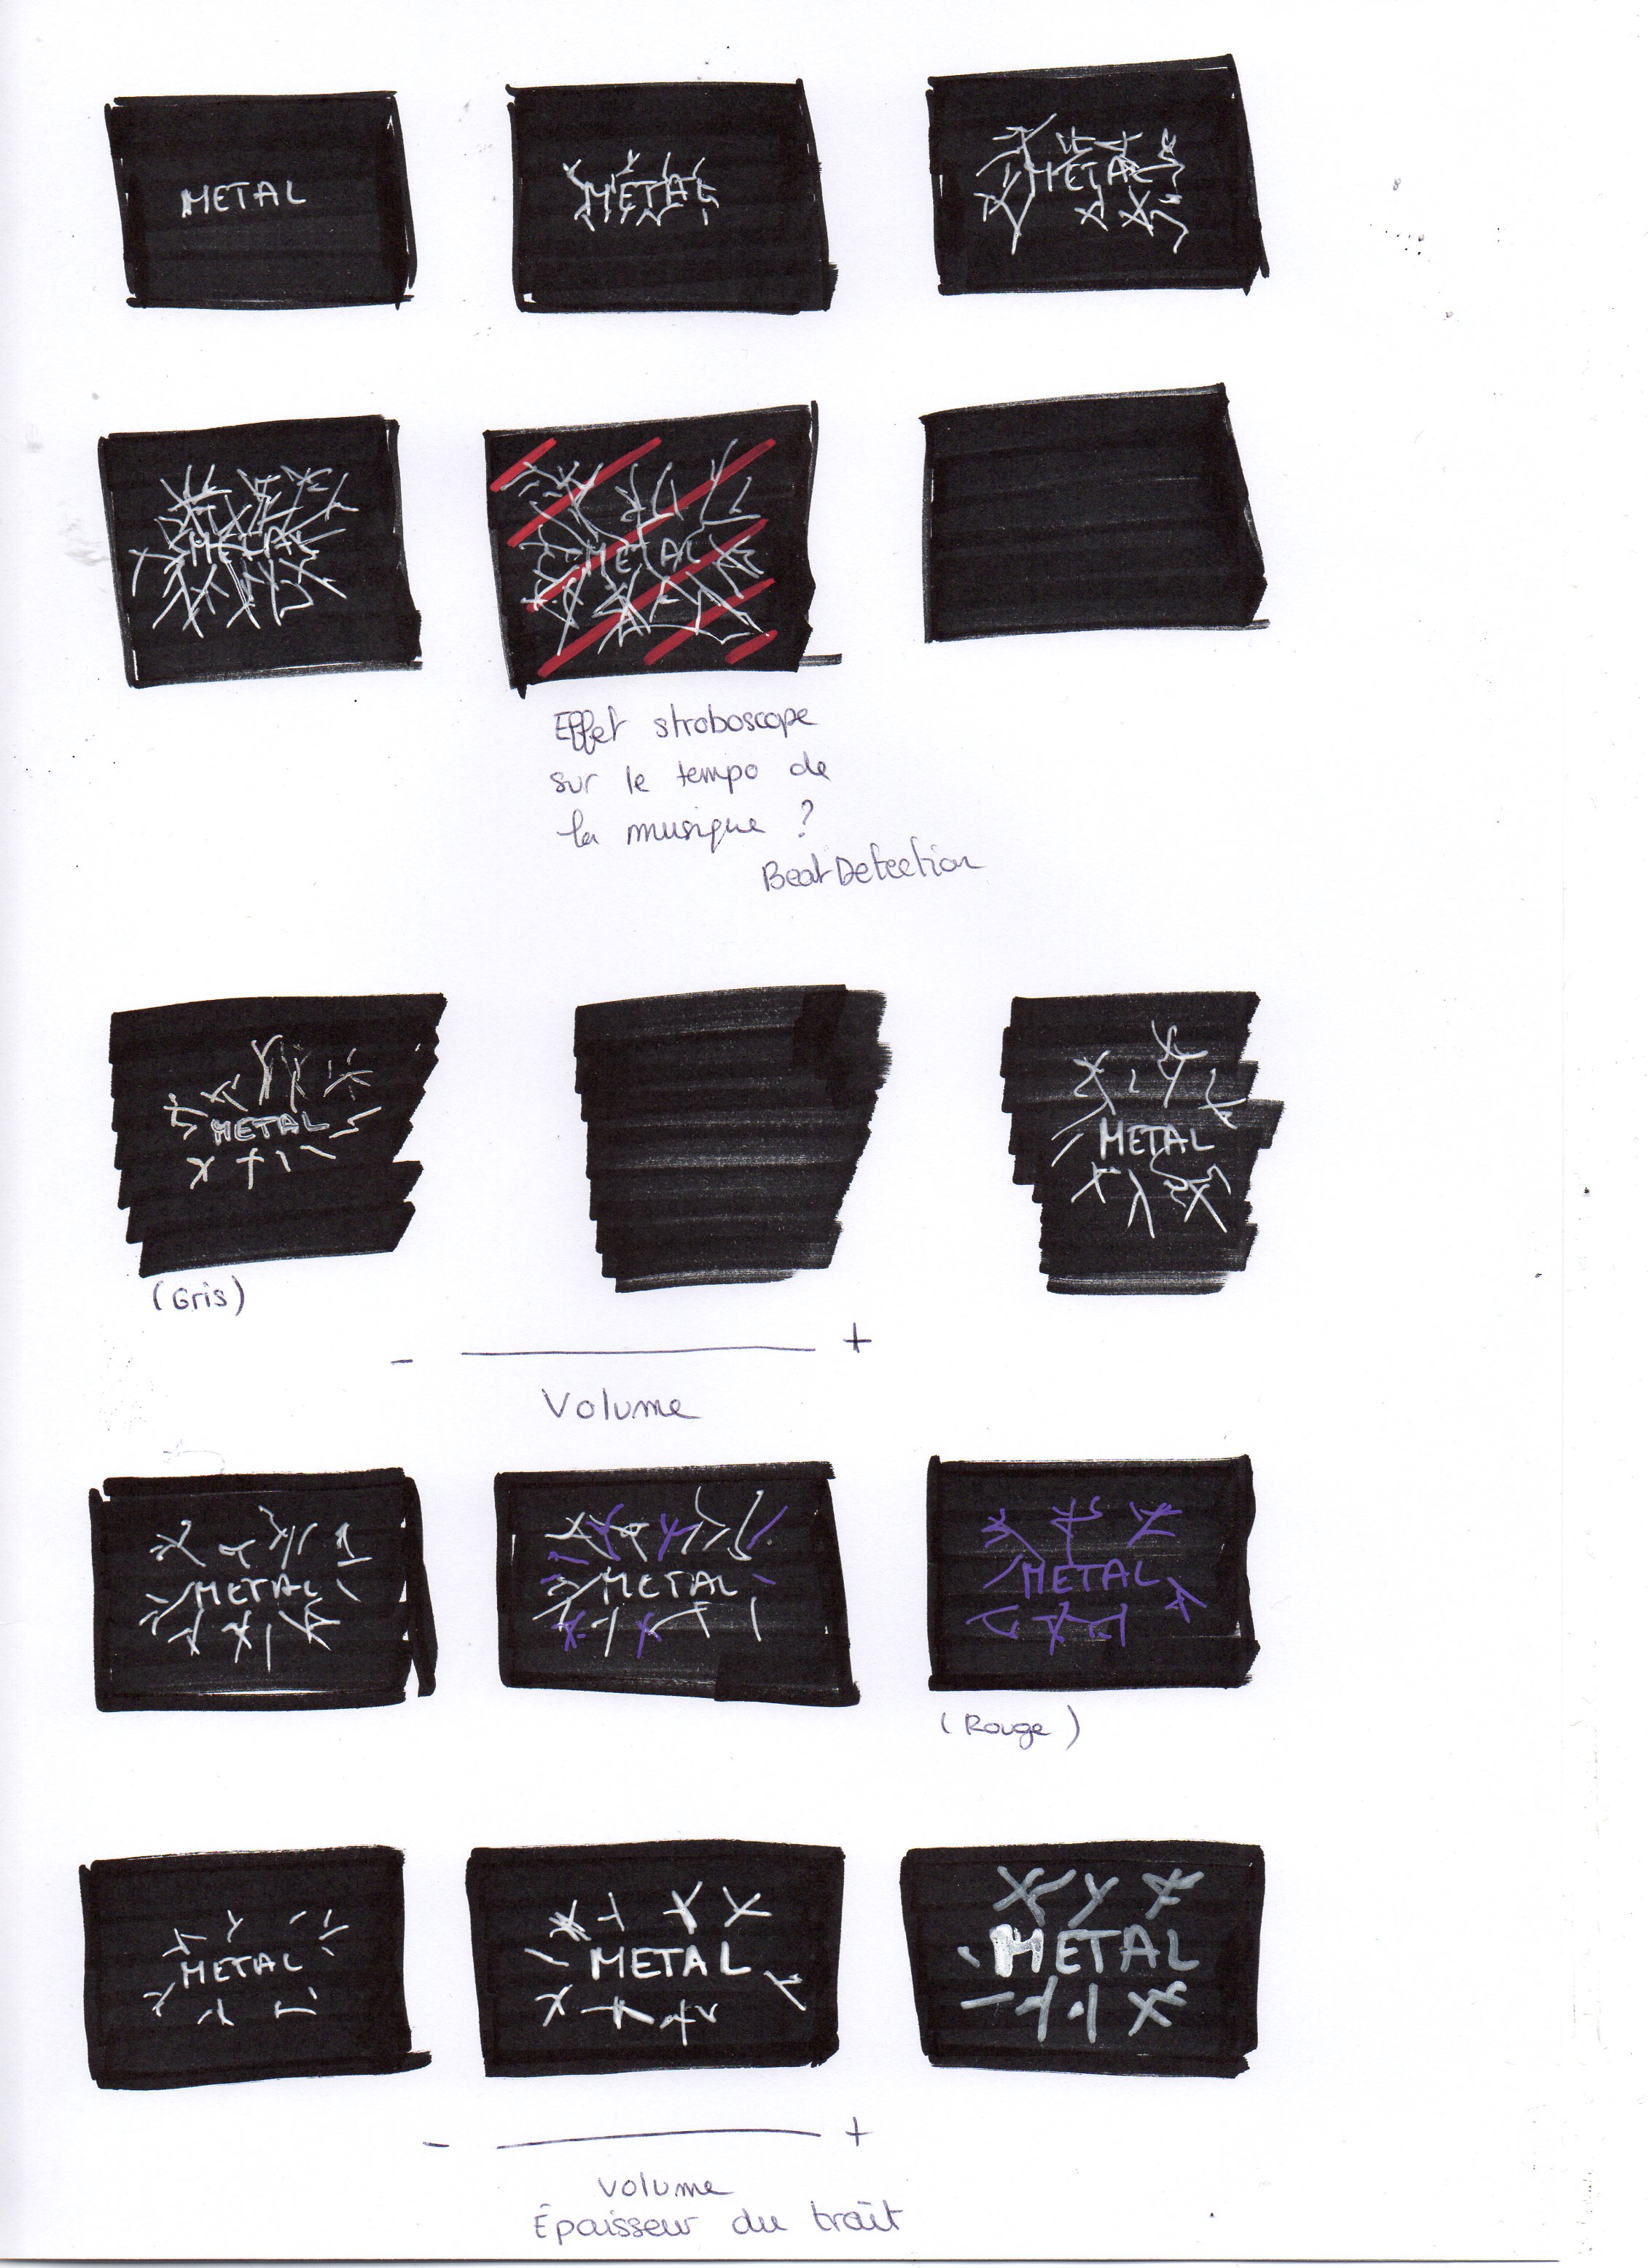 METAL
METAL
METAL
METAL
METAL
Effet stroboscope
sur le tempo de
la musique ?
BeatDetection
METAL
METAL
(Gris)
- +
Volume
METAL
METAL
METAL
(Rouge)
METAL
METAL
METAL
- +
Volume
Épaisseur du trait